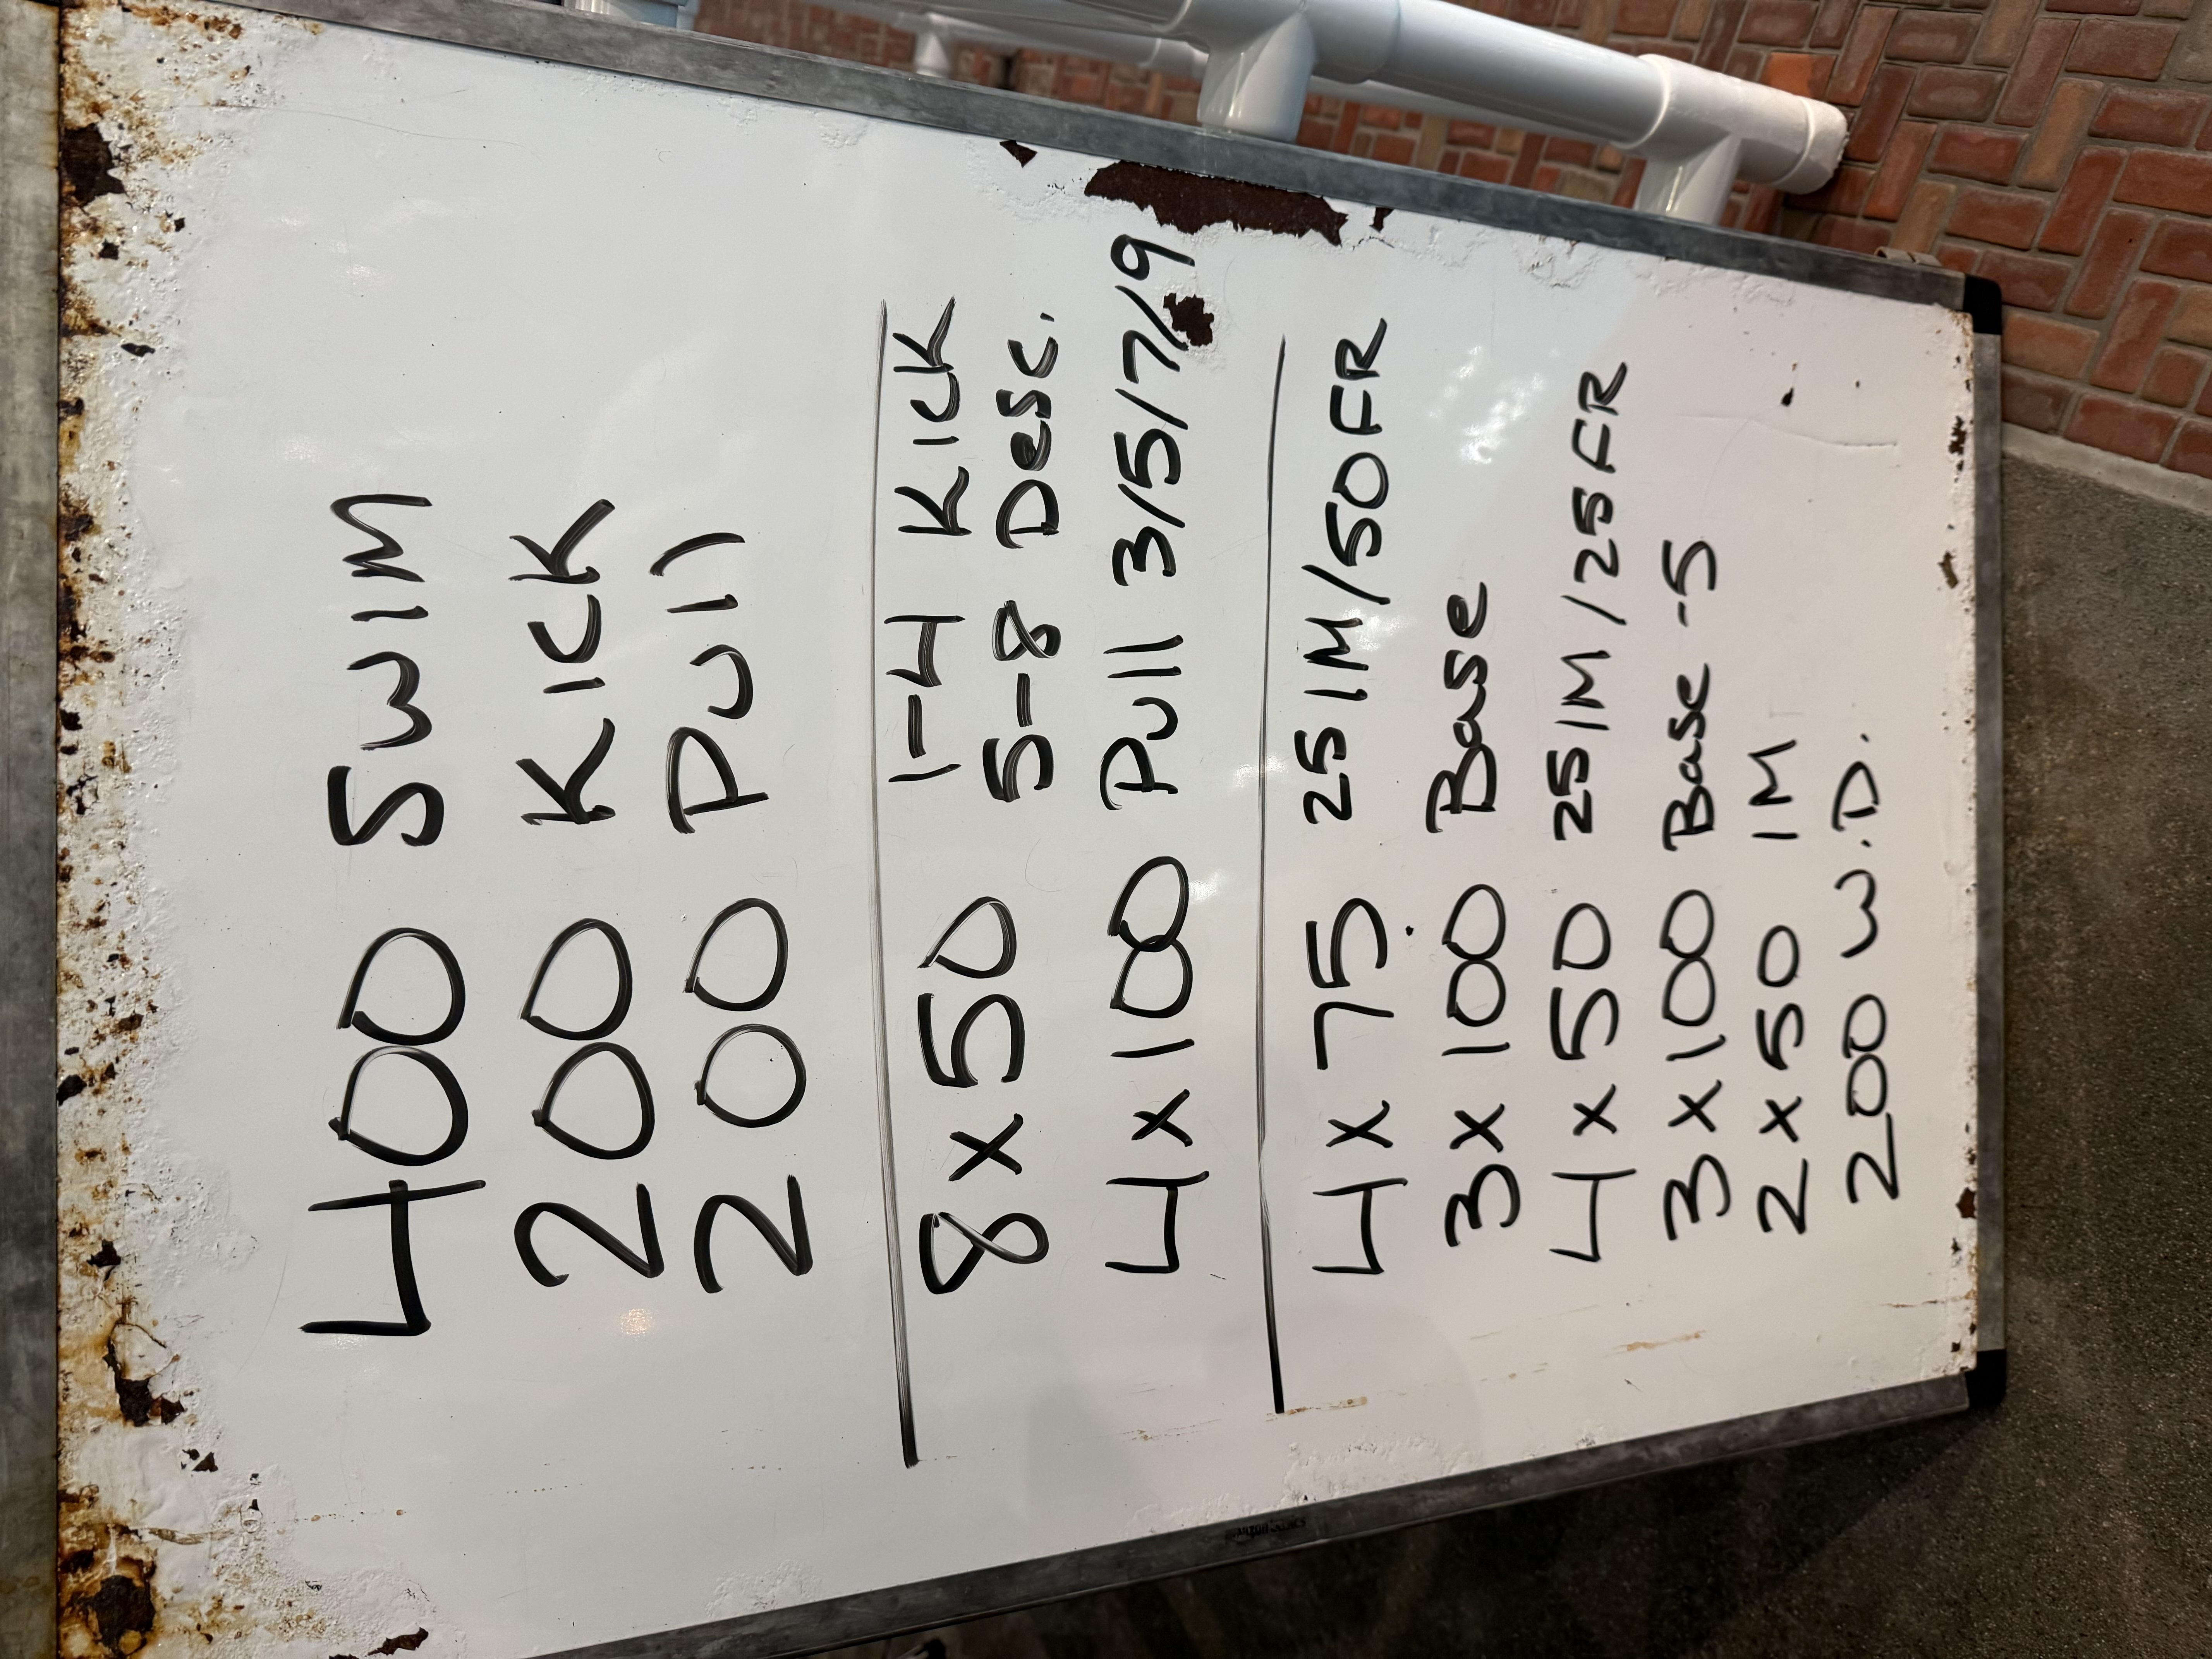 400 Swim
200 Kick
200 Pull
8 x 50 1-4 Kick
5-8 Desc.
4 x 100 Pull 3/5/7/9
4 x 75 25 IM/50FR
3 x 100 Base
4 x 50 25 IM/25FR
3 x 100 Base -5
2 x 50 IM
200 W.D.